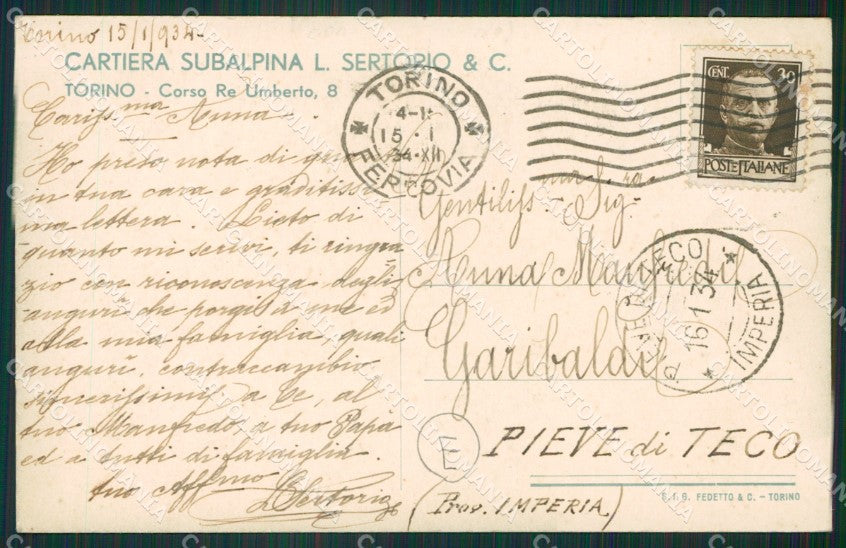 Torino 15/1/934-
CARTIERA SUBALPINA L. SERTORIO & C.
TORINO - Corso Re Umberto, 8
Cariss.ma Anna.
Ho preso nota di quanto
in tua cara e graditissi-
ma lettera. Lieto di
quanto mi scrivi, ti ringra
zio con riconoscenza degli
auguri che porgi a me ed
alla mia famiglia, quali
auguri, contraccambio
sincerissimi a te, al
tuo Manfredo, a tuo Papà
ed a tutti di famiglia.
tuo Aff.mo
LSertorio
TORINO
15 . I
34 . XII
FERROVIA
CENT. 30
POSTE ITALIANE
Gentiliss.ma Sig.ra
Anna Manfredi
Garibaldi
PIEVE DI TECO
16.1.34
* IMPERIA *
PIEVE di TECO
(Prov. IMPERIA)
S.I.G. FEDETTO & C. - TORINO
CARTOLINOMANIA